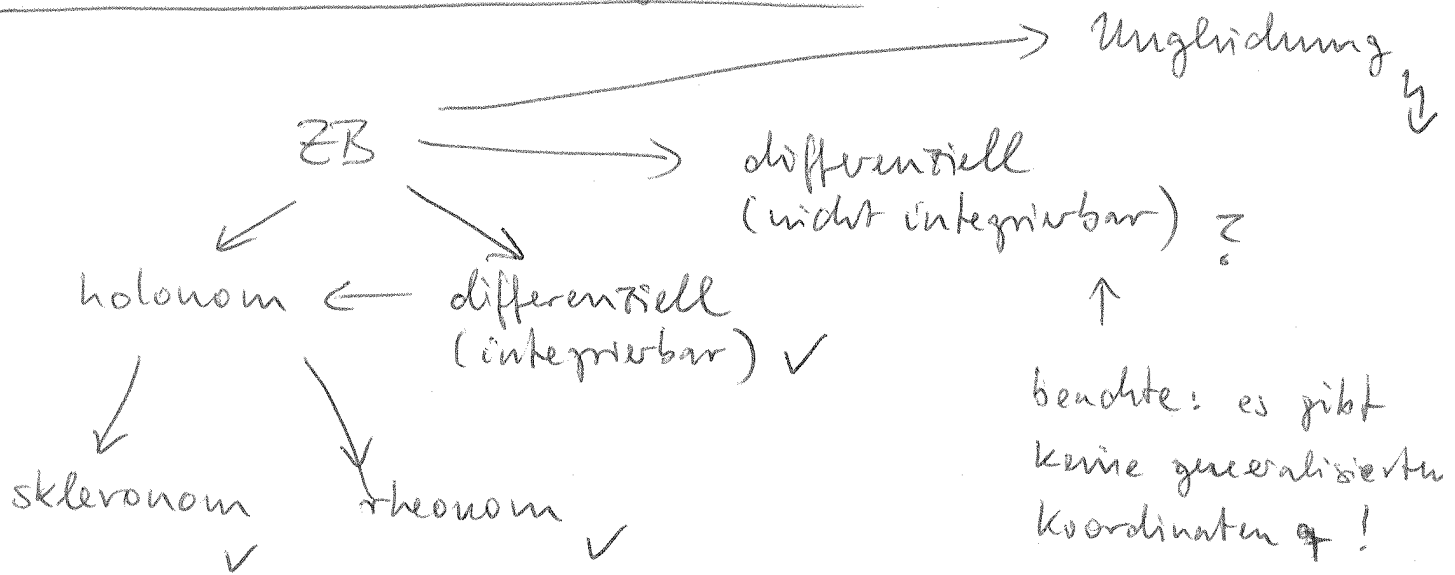 Ungleichung
ZB
differenziell
(nicht integrierbar) ?
holonom
differenziell
(integrierbar) ✓
beachte: es gibt
keine generalisierten
Koordinaten q !
skleronom ✓
rheonom ✓